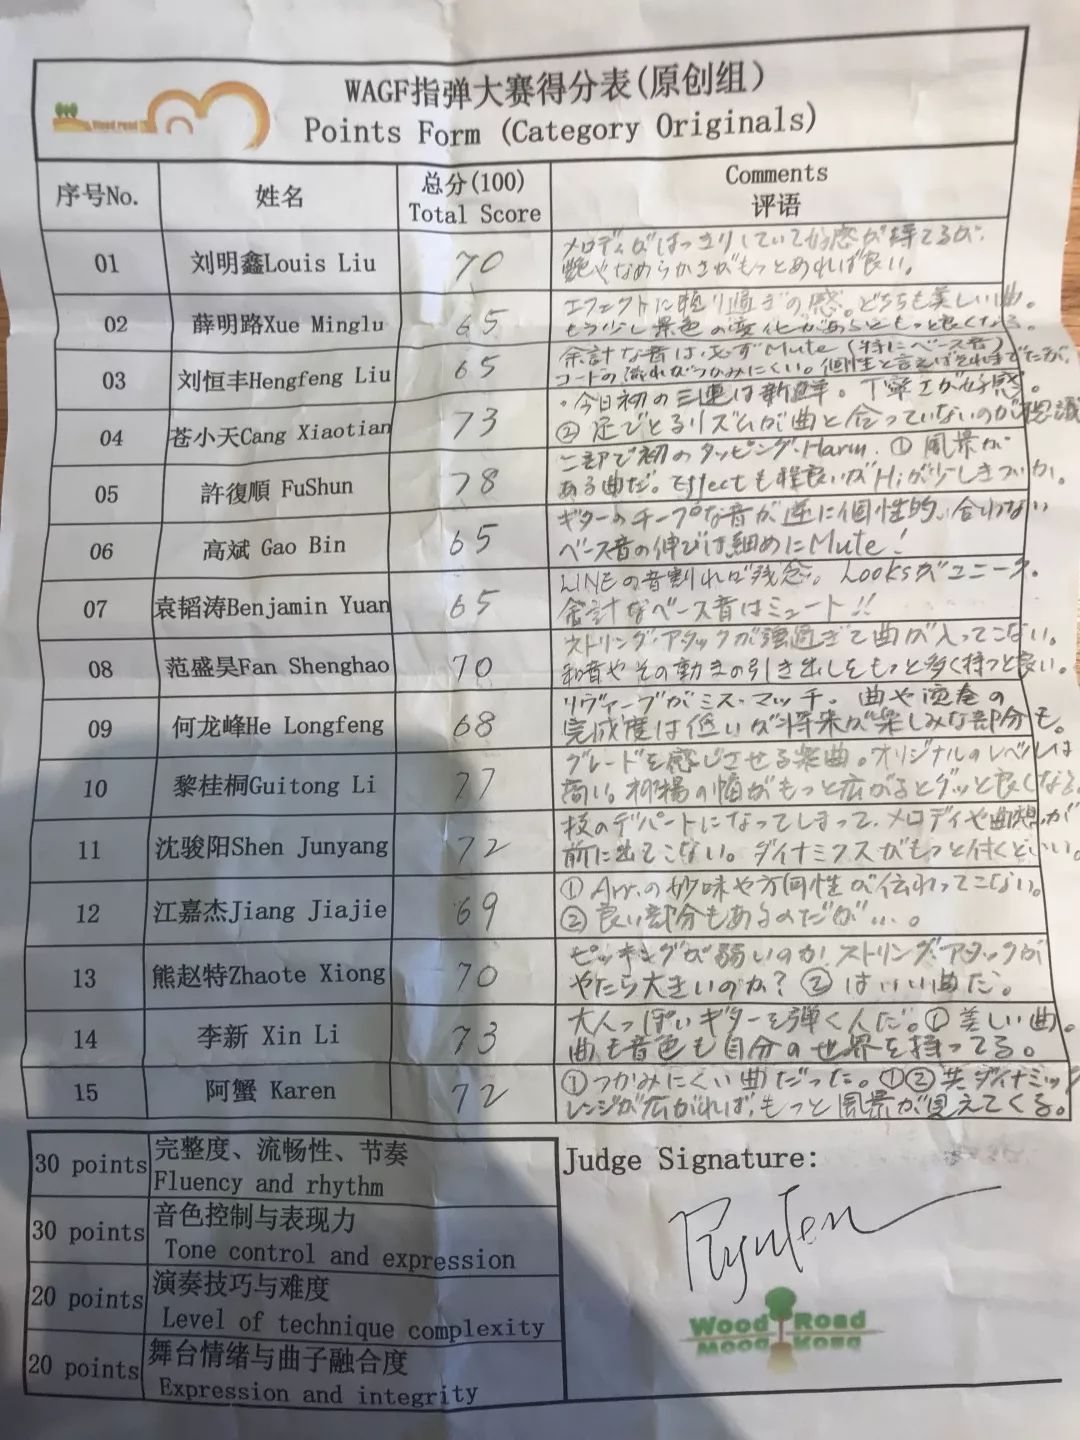 Wood road
WAGF指弹大赛得分表(原创组)
Points Form (Category Originals)
序号No.
姓名
总分(100)
Total Score
Comments
评语
01
刘明鑫Louis Liu
70
メロディがはっきりしていて好感が持てるが、
艶やなめらかさがもっとあれば良い。
02
薛明路Xue Minglu
65
エフェクトに頼り過ぎの感。どちらも美しい曲。
もう少し景色の変化があるともっと良くなる。
03
刘恒丰Hengfeng Liu
65
余計な音は必ずMute(特にベース音)
コードの流れがつかみにくい。個性と言えばそれまでだが。
04
苍小天Cang Xiaotian
73
・今日初の三連は新鮮。丁寧さが好感。
② 足でとるリズムが曲と合っていないのが
05
許復順 FuShun
78
二部で初のタッピング・Harm. ① 風景が
ある曲だ。Effectも程良いがHiが少しきついか。
06
高斌 Gao Bin
65
ギターのチープな音が逆に個性的。合わない
ベース音の伸びは細めにMute!
07
袁韬涛Benjamin Yuan
65
LINEの音割れが残念。Looksがユニーク。
余計なベース音はミュート!!
08
范盛昊Fan Shenghao
70
ストリング・アタックが強過ぎて曲が入ってこない。
和音やその動きの引き出しをもっと多く持つと良い。
09
何龙峰He Longfeng
68
リヴァーブがミス・マッチ。曲や演奏の
完成度は低いが将来が楽しみな部分も。
10
黎桂桐Guitong Li
77
グレードを感じさせる楽曲。オリジナルのレベルは
高い。抑揚の幅がもっと広がるとグッと良くなる。
11
沈骏阳Shen Junyang
72
技のデパートになってしまって、メロディや曲想が
前に出てこない。ダイナミクスがもっと付くといい。
12
江嘉杰Jiang Jiajie
69
① Arr.の妙味や方向性が伝わってこない。
② 良い部分もあるのだが…。
13
熊赵特Zhaote Xiong
70
ピッキングが弱いのか、ストリング・アタックが
やたら大きいのか? ② はいい曲だ。
14
李新 Xin Li
73
大人っぽいギターを弾く人だ。① 美しい曲。
曲も音色も自分の世界を持ってる。
15
阿蟹 Karen
72
①つかみにくい曲だった。①②共ダイナミック
レンジが広がれば、もっと風景が見えてくる。
30 points
完整度、流畅性、节奏
Fluency and rhythm
30 points
音色控制与表现力
Tone control and expression
20 points
演奏技巧与难度
Level of technique complexity
20 points
舞台情绪与曲子融合度
Expression and integrity
Judge Signature:
Wood Road